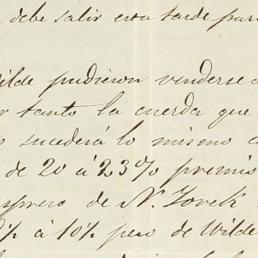 debe salir esta tarde par
ilde pudieron venderse a
tanto la cuerda que
sucederá lo mismo c
de 20 á 23% premio
espreso de N. Yorck
% á 10% peso de Wilde